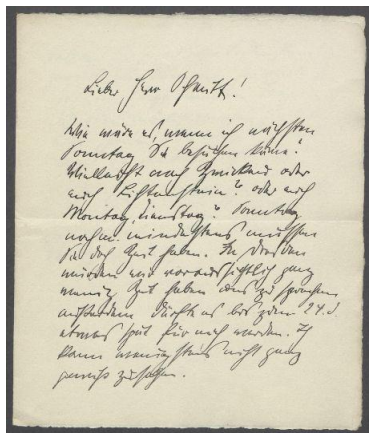 Lieber Herr
Wie wäre es, wenn ich nächsten
Sonntag Sie besuchen käme?
Vielleicht nach Zwickau oder
nach Lichtenstein? oder auch
Montag, Dienstag? Sonntag
nachm. mindestens müssten
Sie doch Zeit haben. In Dresden
würden wir voraussichtlich ganz
wenig Zeit haben uns zu sprechen,
außerdem dürfte es bis zum 24. d.
etwas spät für mich werden. Ich
kann wenigstens nicht ganz
gewiss zusagen.